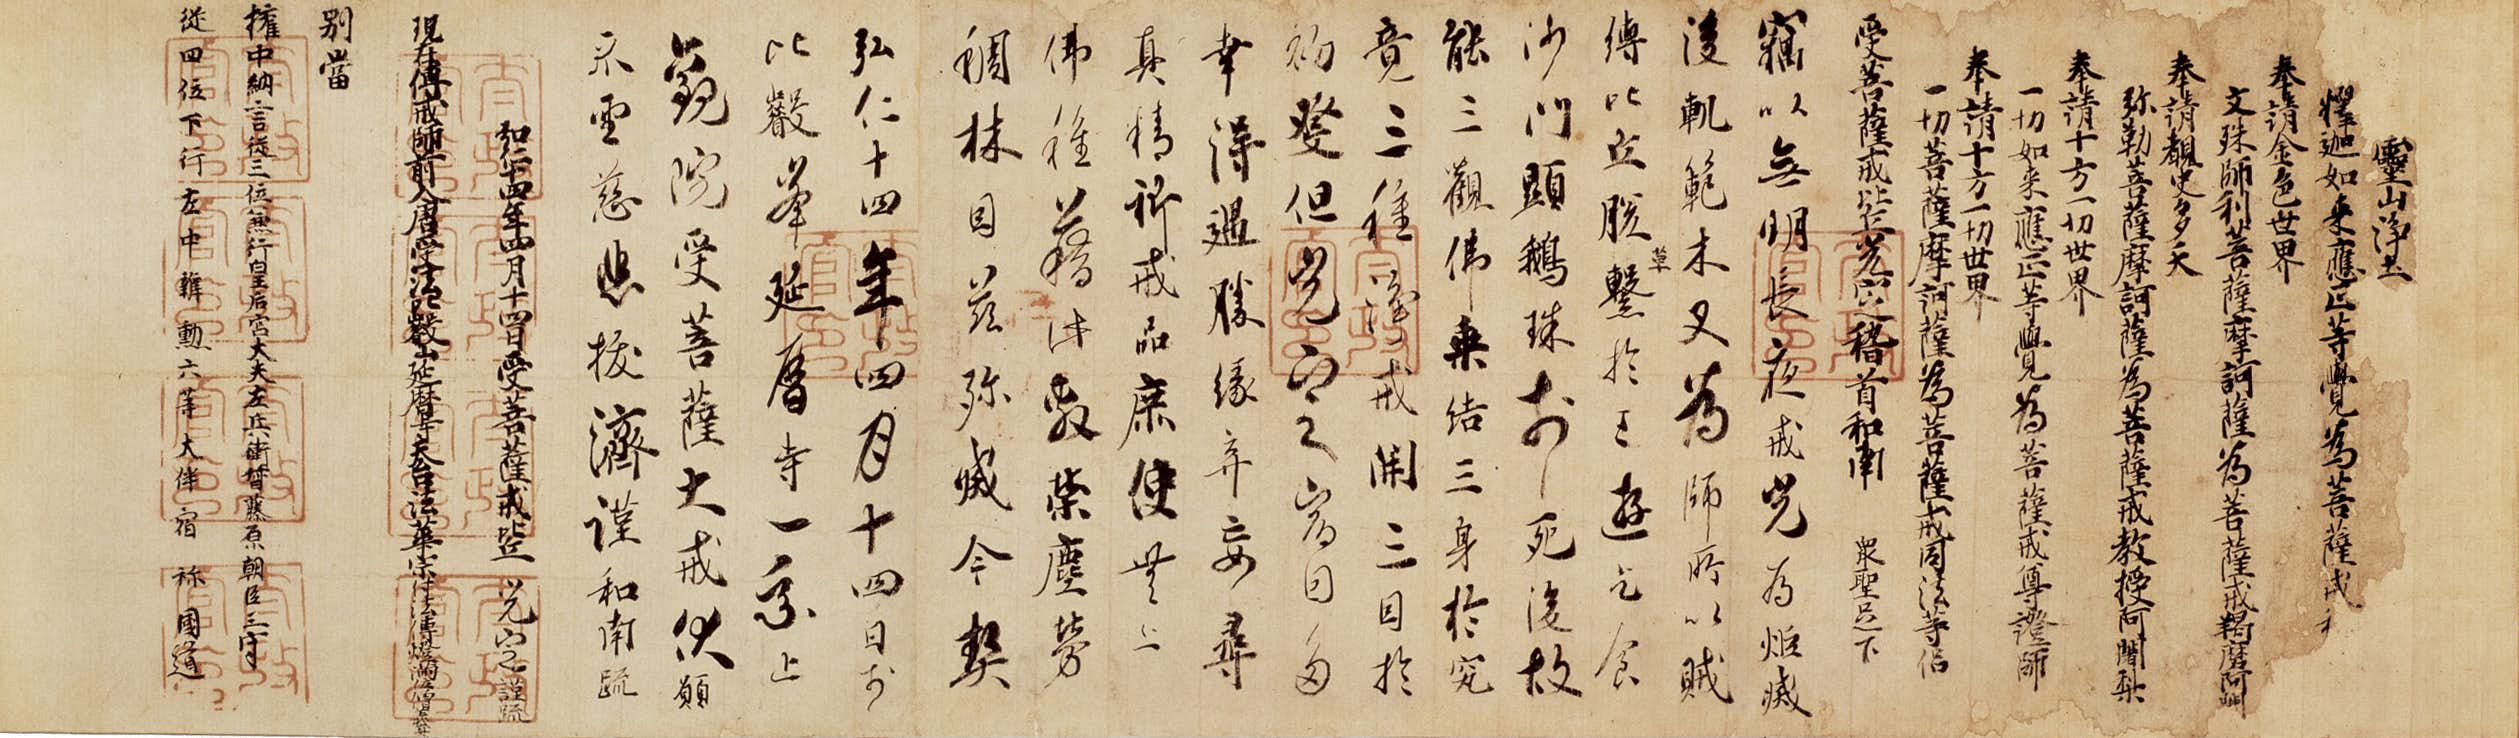 靈山淨土
釋迦如来應正等覺為菩薩戒和
奉請金色世界
文殊師利菩薩摩訶薩為菩薩戒羯磨阿闍
奉請覩史多天
弥勒菩薩摩訶薩為菩薩戒教授阿闍梨
奉請十方一切世界
一切如来應正等覺為菩薩戒尊證師
奉請十方一切世界
一切菩薩摩訶薩為菩薩戒同法等侶
受菩薩戒比丘光定稽首和南 衆聖足下
竊以無明長夜戒光為炬滅
後軌範木叉為師所以賊
縛比丘脱草繫於王遊乞食
沙門顕鵝珠於死後故
能三觀佛乗結三身於究
竟三種淨戒開三因於
初發但光定宿因多
幸得遇勝縁弃妄尋
真精祈戒品庶使無上
佛種藉此敷榮塵勞
稠林因茲殄滅今契
弘仁十四年四月十四日於
比叡峯延曆寺一乗止
觀院受菩薩大戒伏願
不垂慈悲拔濟謹和南疏
弘仁十四年四月十四日受菩薩戒比丘 光定謹疏
現在傳戒師前入唐受法比叡山延曆寺天台法華宗付法傳燈滿位僧義
別當
權中納言從三位兼行皇后宮大夫左兵衛督藤原朝臣三守
從四位下行左中辨勲六等大伴宿祢國道
太政官印